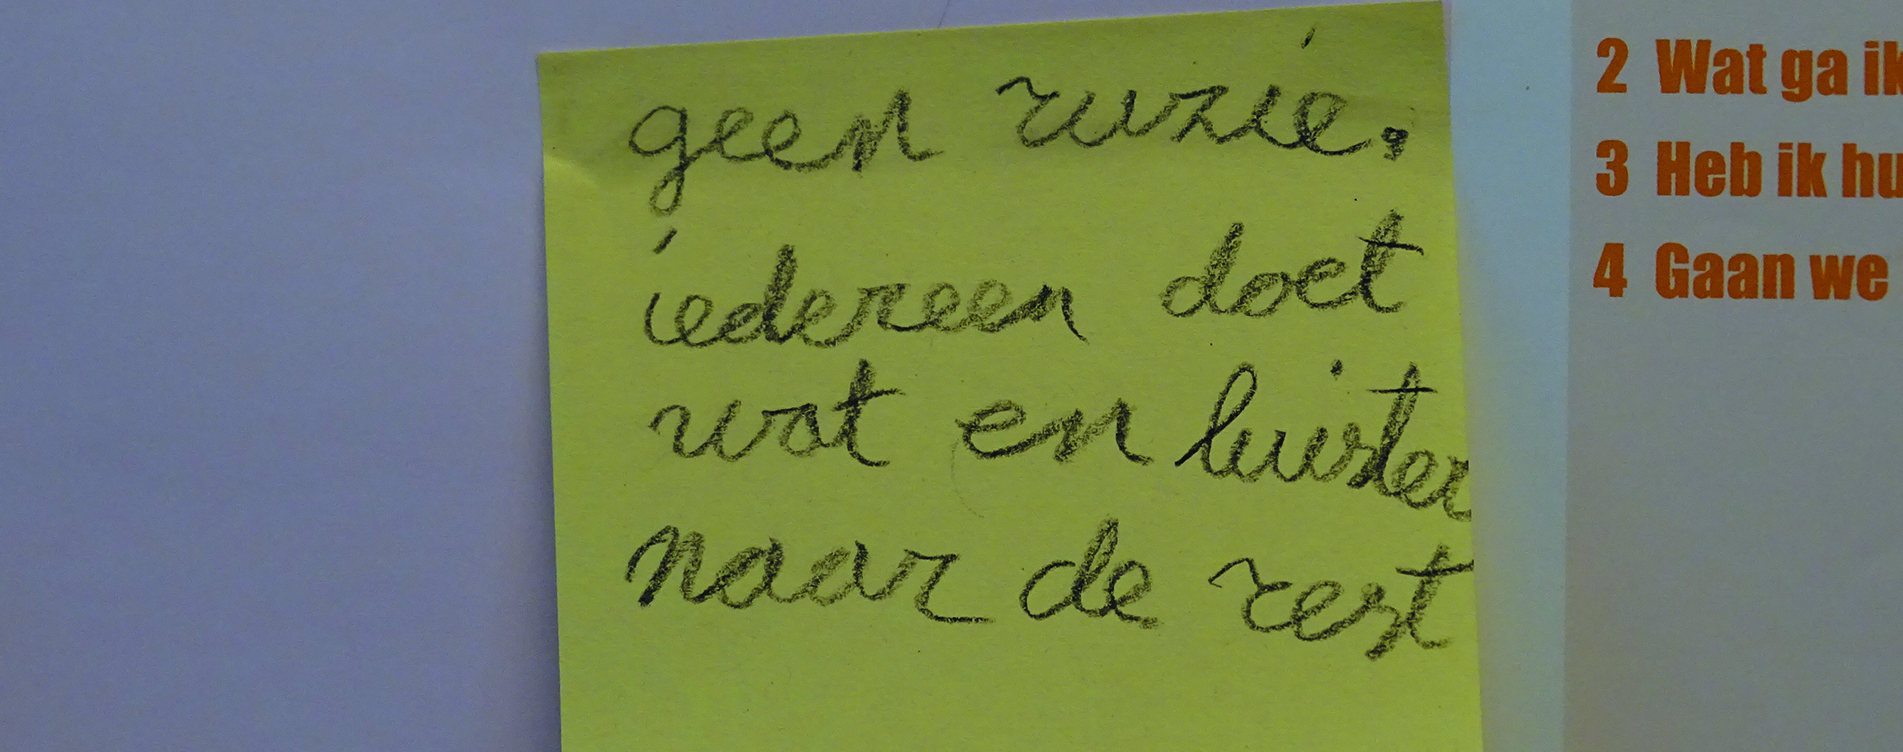 geen ruzie.
iedereen doet
wat en luister
naar de rest
2 Wat ga ik
3 Heb ik hu
4 Gaan we